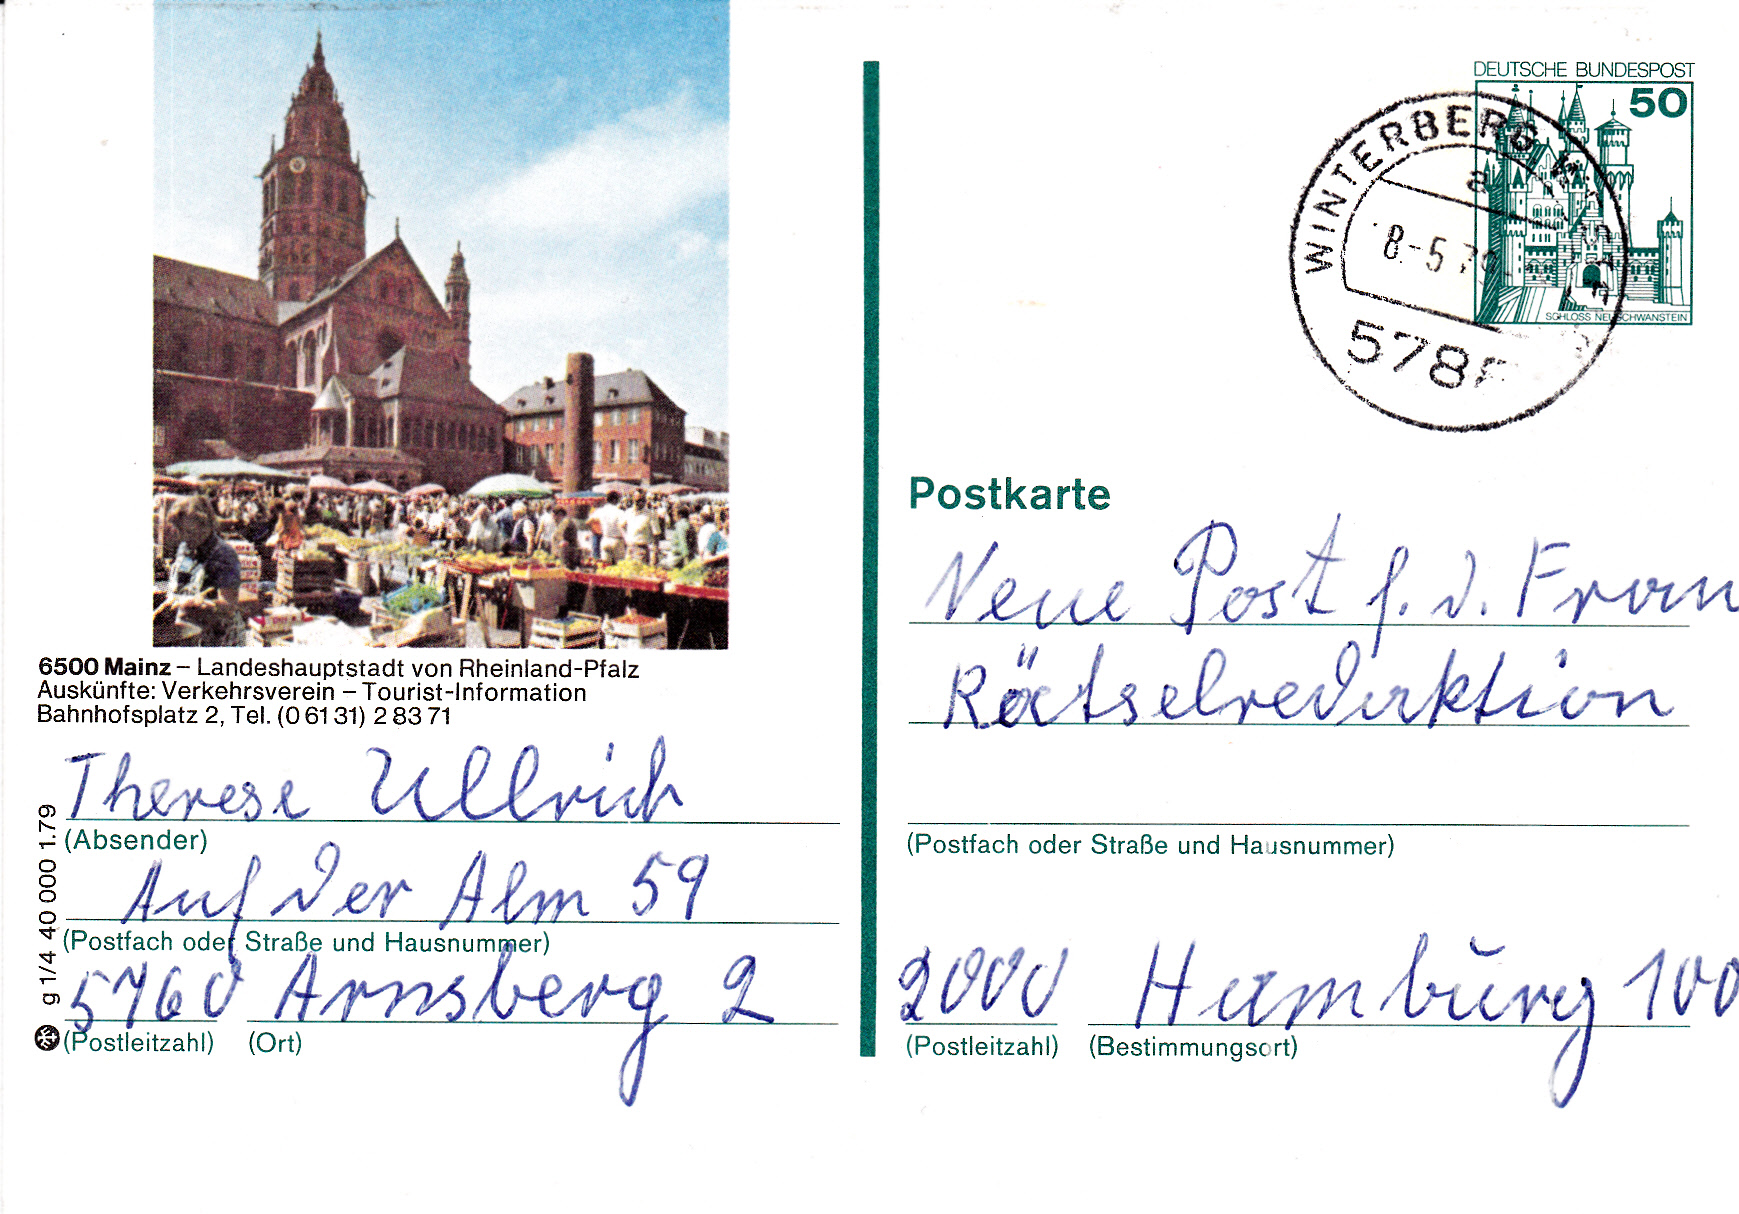 6500 Mainz – Landeshauptstadt von Rheinland-Pfalz
Auskünfte: Verkehrsverein – Tourist-Information
Bahnhofsplatz 2, Tel. (0 61 31) 2 83 71
Therese Ullrich
(Absender)
Auf der Alm 59
(Postfach oder Straße und Hausnummer)
5760 Arnsberg 2
(Postleitzahl) (Ort)
g 1/4 40 000 1.79
DEUTSCHE BUNDESPOST
50
SCHLOSS NEUSCHWANSTEIN
WINTERBERG
a
8.-5.79
578
Postkarte
Neue Post f. d. Frau
Rätselredaktion
(Postfach oder Straße und Hausnummer)
2000 Hamburg 100
(Postleitzahl) (Bestimmungsort)